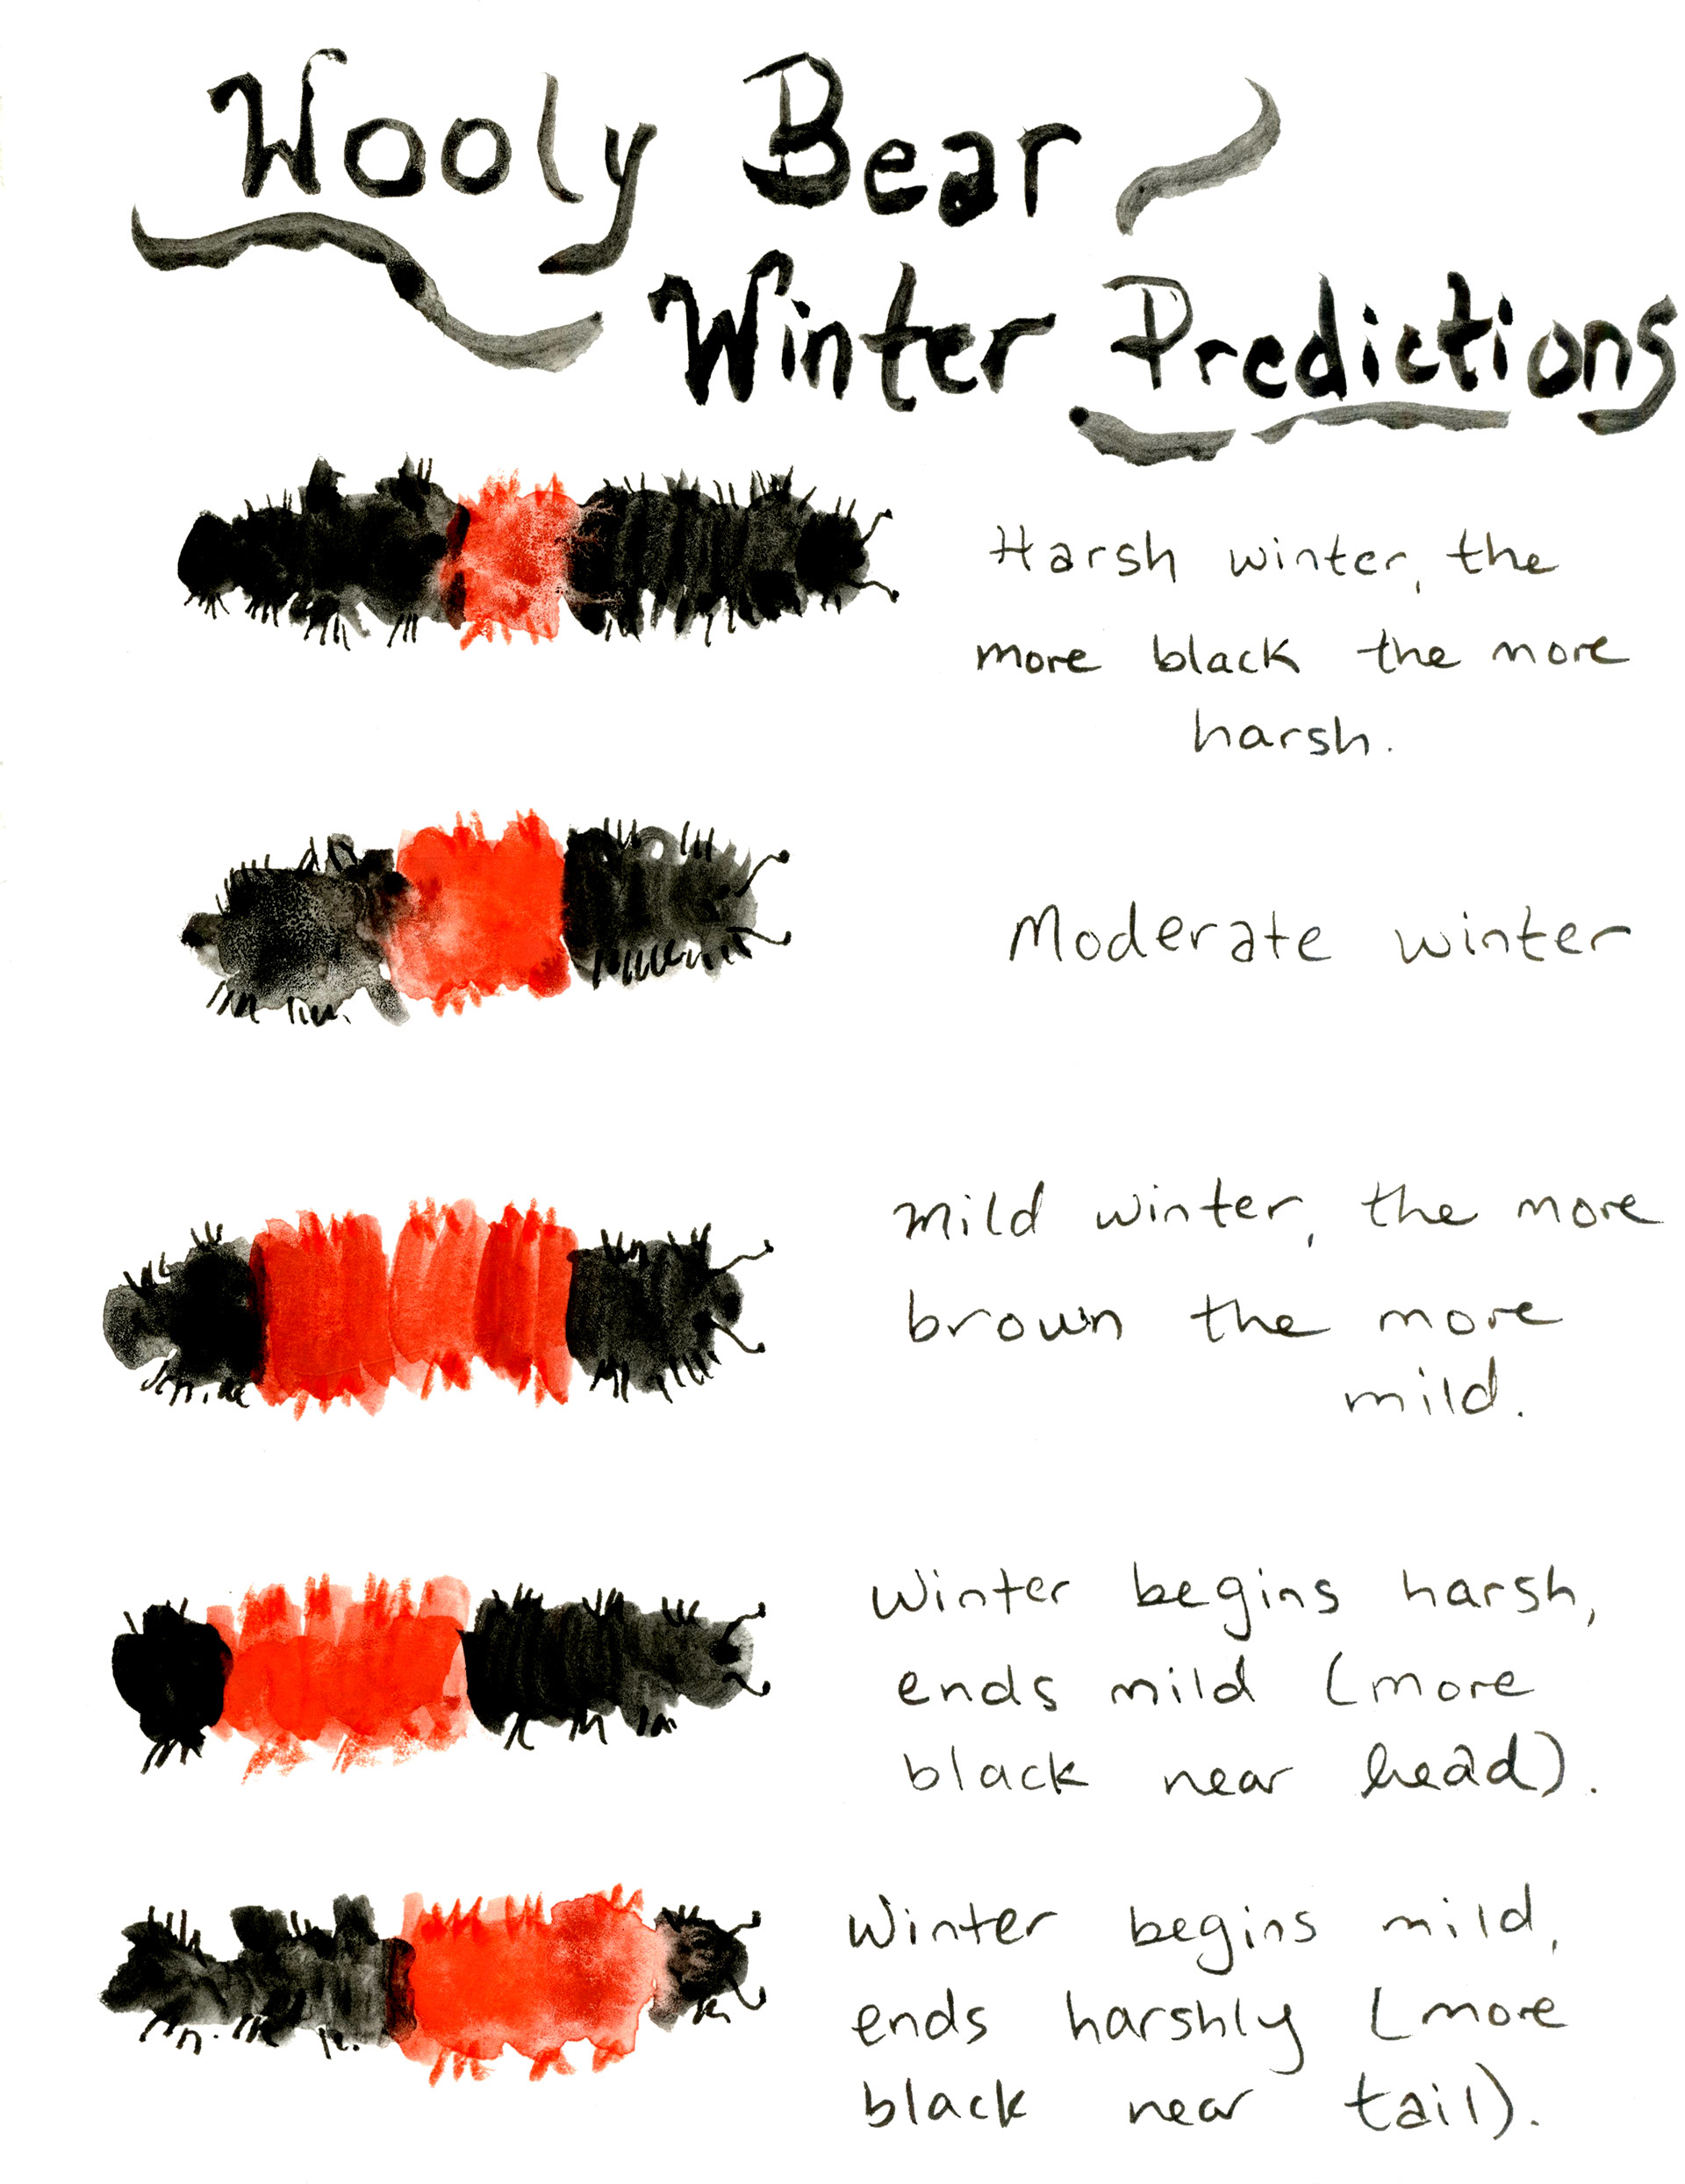 Wooly Bear
Winter Predictions
Harsh winter, the
more black the more
harsh.
Moderate winter
Mild winter, the more
brown the more
mild.
Winter begins harsh,
ends mild (more
black near head).
Winter begins mild,
ends harshly (more
black near tail).